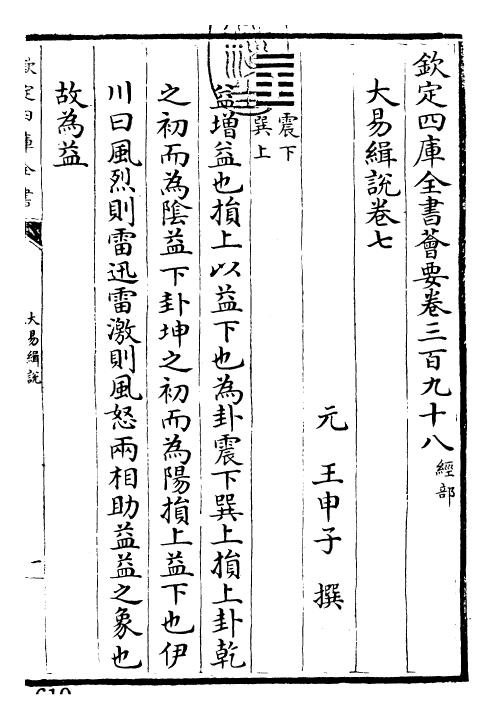 欽定四庫全書薈要卷三百九十八 經部
大易緝說卷七
元 王申子 撰
震下
巽上
益增益也損上以益下也為卦震下巽上損上卦乾
之初而為陰益下卦坤之初而為陽損上益下也伊
川曰風烈則雷迅雷激則風怒兩相助益益之象也
故為益
欽定四庫全書
大易緝說
一